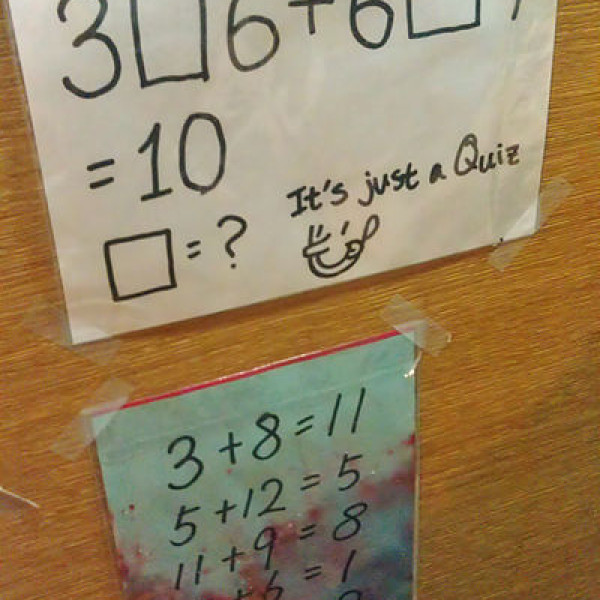 3□6+6□
=10
□=?
It's just a Quiz
3+8=11
5+12=5
11+9=8
+6=1